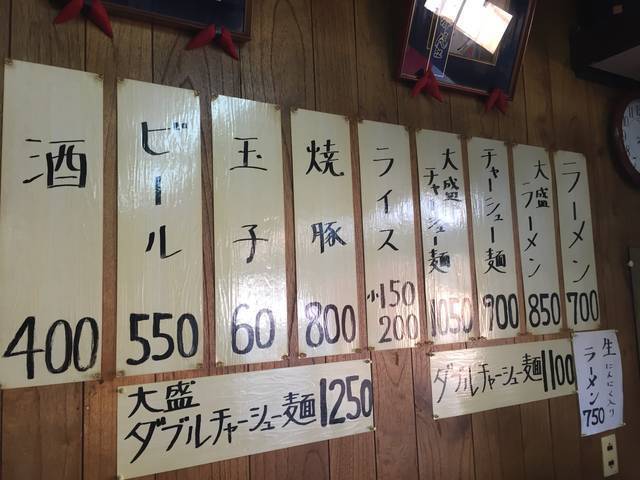 ラーメン
700
大盛
ラーメン
850
チャーシュー麺
900
大盛
チャーシュー麺
1050
ライス
小150
200
焼豚
800
玉子
60
ビール
550
酒
400
生
にんにく入り
ラーメン
750
ダブルチャーシュー麺1100
大盛
ダブルチャーシュー麺1250